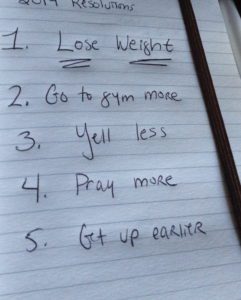 2014 Resolutions
1. Lose Weight
2. Go to gym more
3. Yell less
4. Pray more
5. Get up earlier